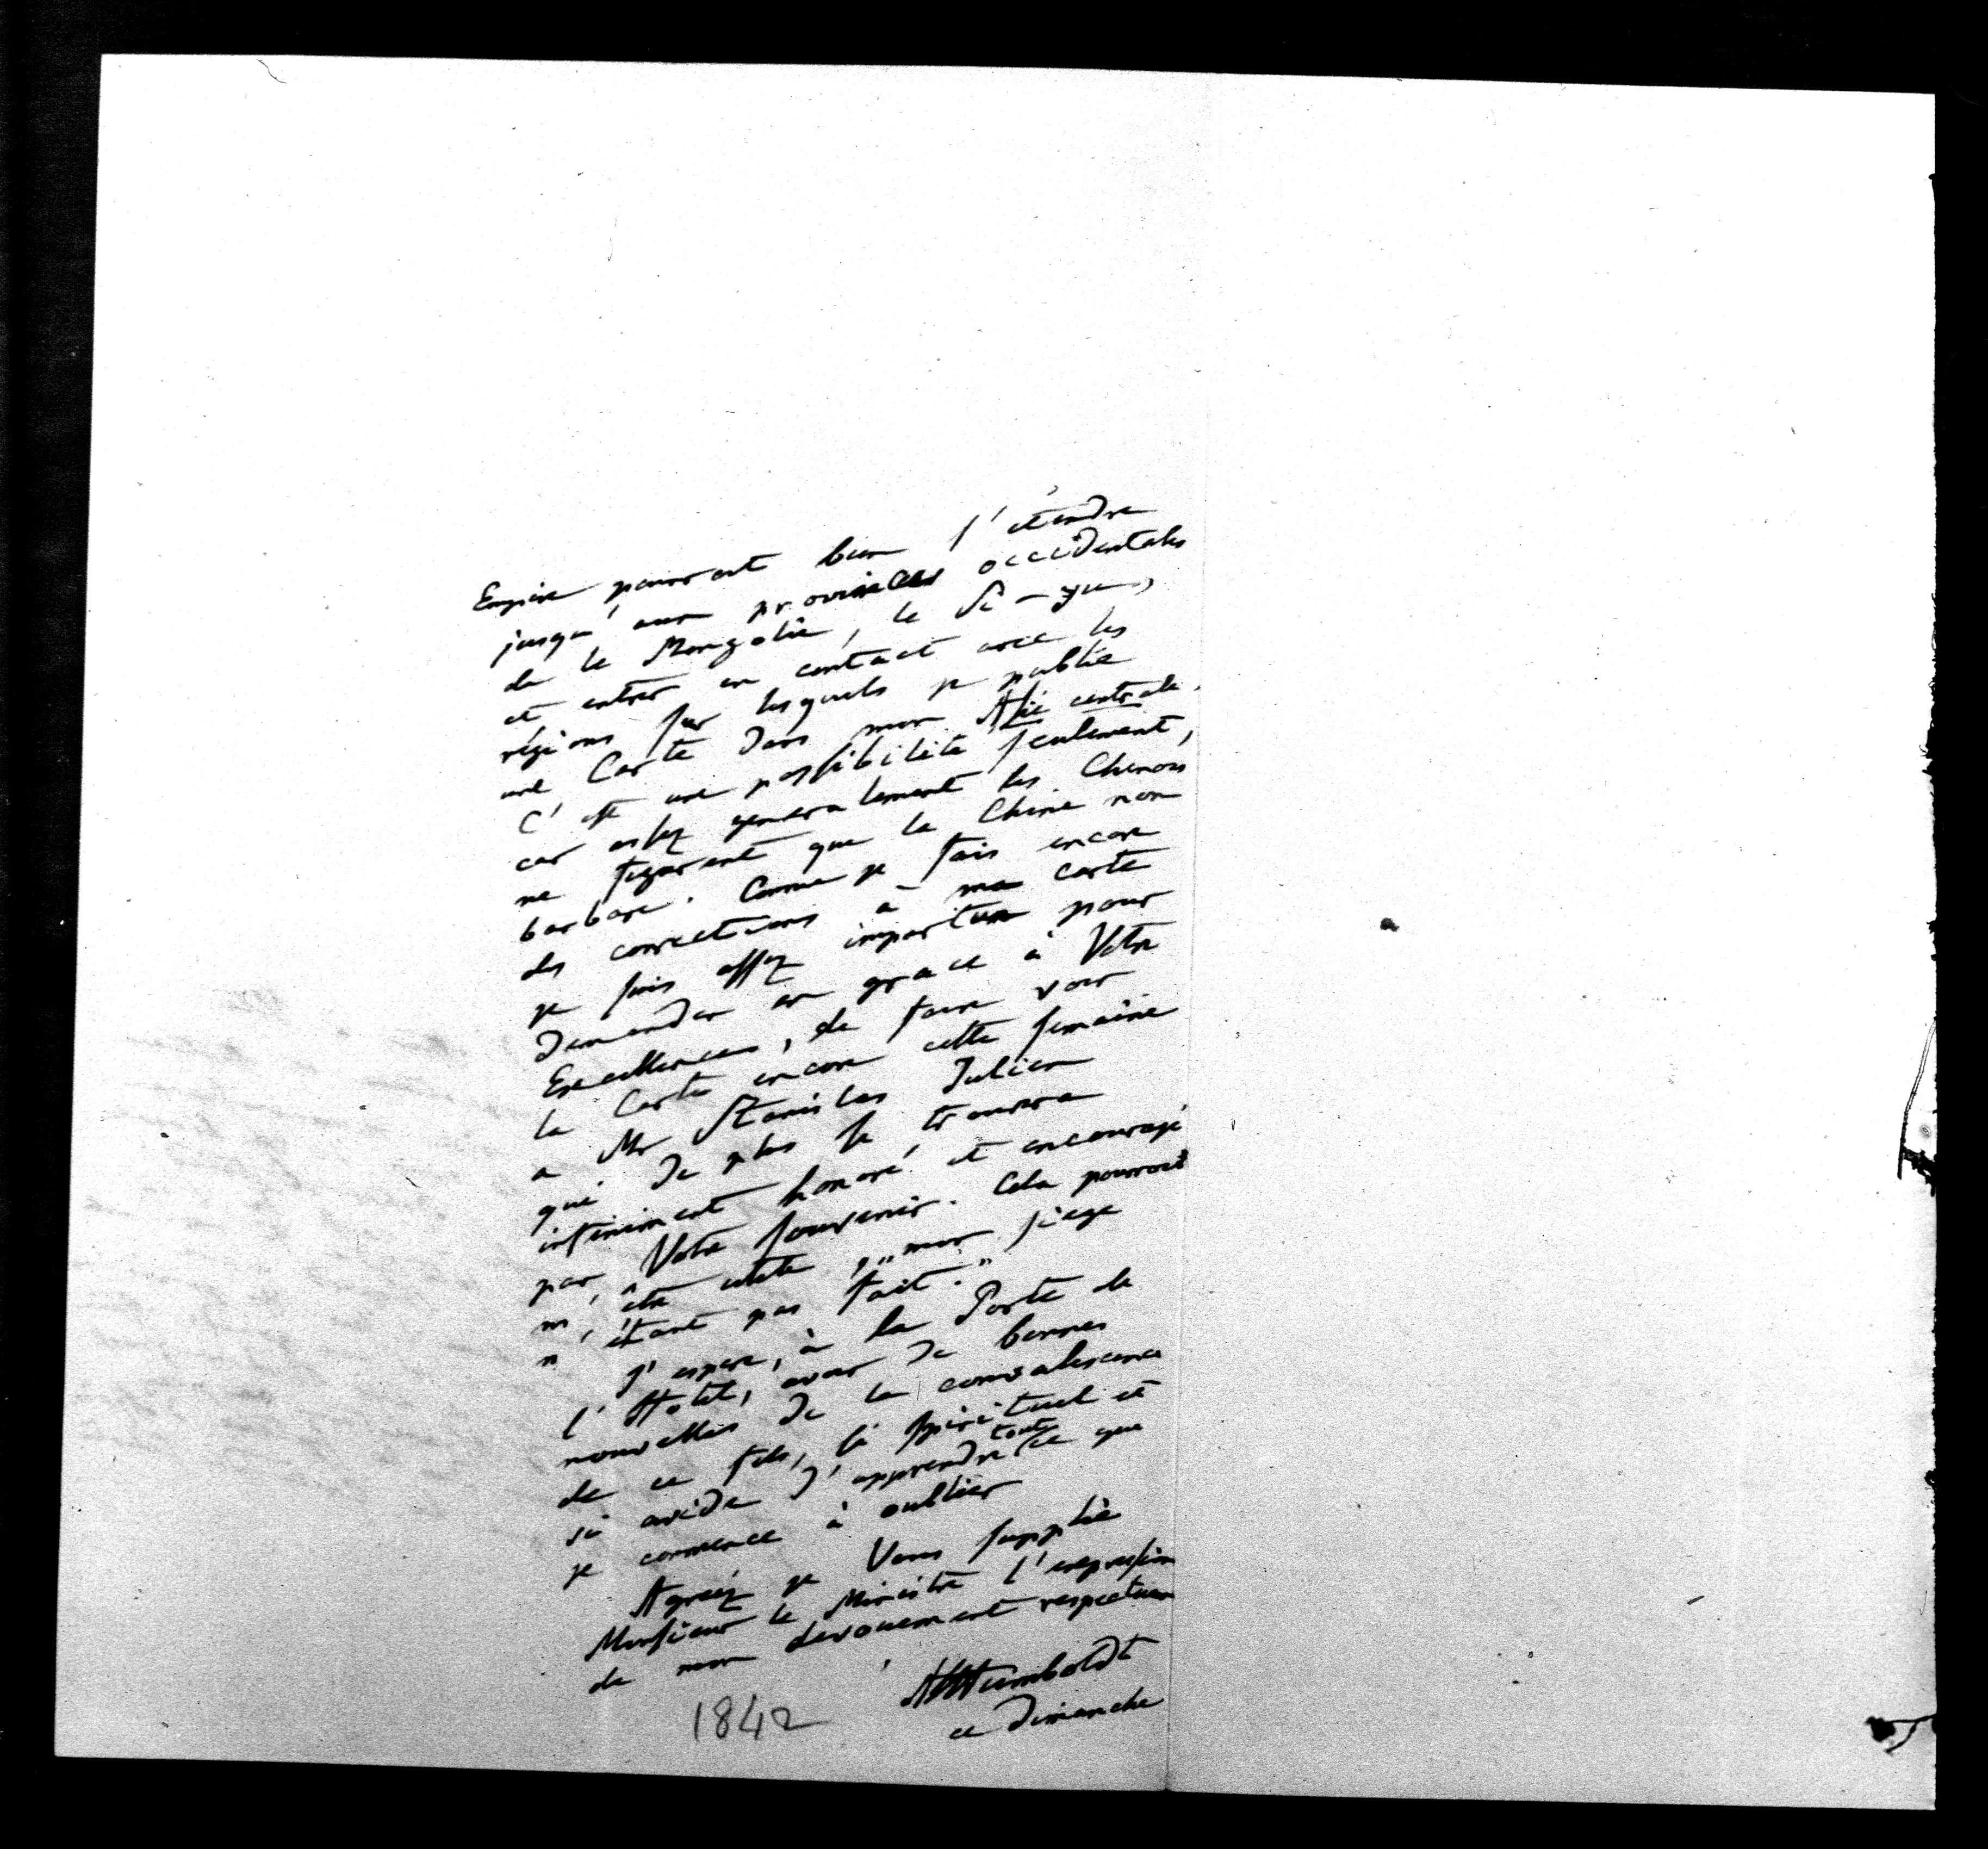 Empire pourroit bien s'etendre
jusqu'aux provinces occidentales
de la Mongolie, le Si-yu,
et entrer en contact avec les
régions sur lesquels je publie
une Carte dans mon Asie centrale.
C'est une possibilité seulement,
car assez generalement les Chinois
ne figurent que la Chine non
barbare. Comme je fais encore
des corrections a ma carte
je suis assez importun pour
demander en grace à Votre
Excellence, de faire voir
la Carte encore cette semaine
a Mr Stanislas Julien
qui de plus se trouvera
infiniment honoré et encouragé
par Votre souvenir. Cela pourroit
m'être utile, „mon siege
n'étant pas fait."
J'espere, à la Porte de
l'Hotel, avoir de bonnes
nouvelles de la convalescence
de ce fils, si spirituel et
si avide d'apprendre tout ce que
je commence à oublier
Agréez je Vous supplie
Monsieur le Ministre l'expression
de mon devouement respectueux
AlHumboldt
ce Dimanche
1842